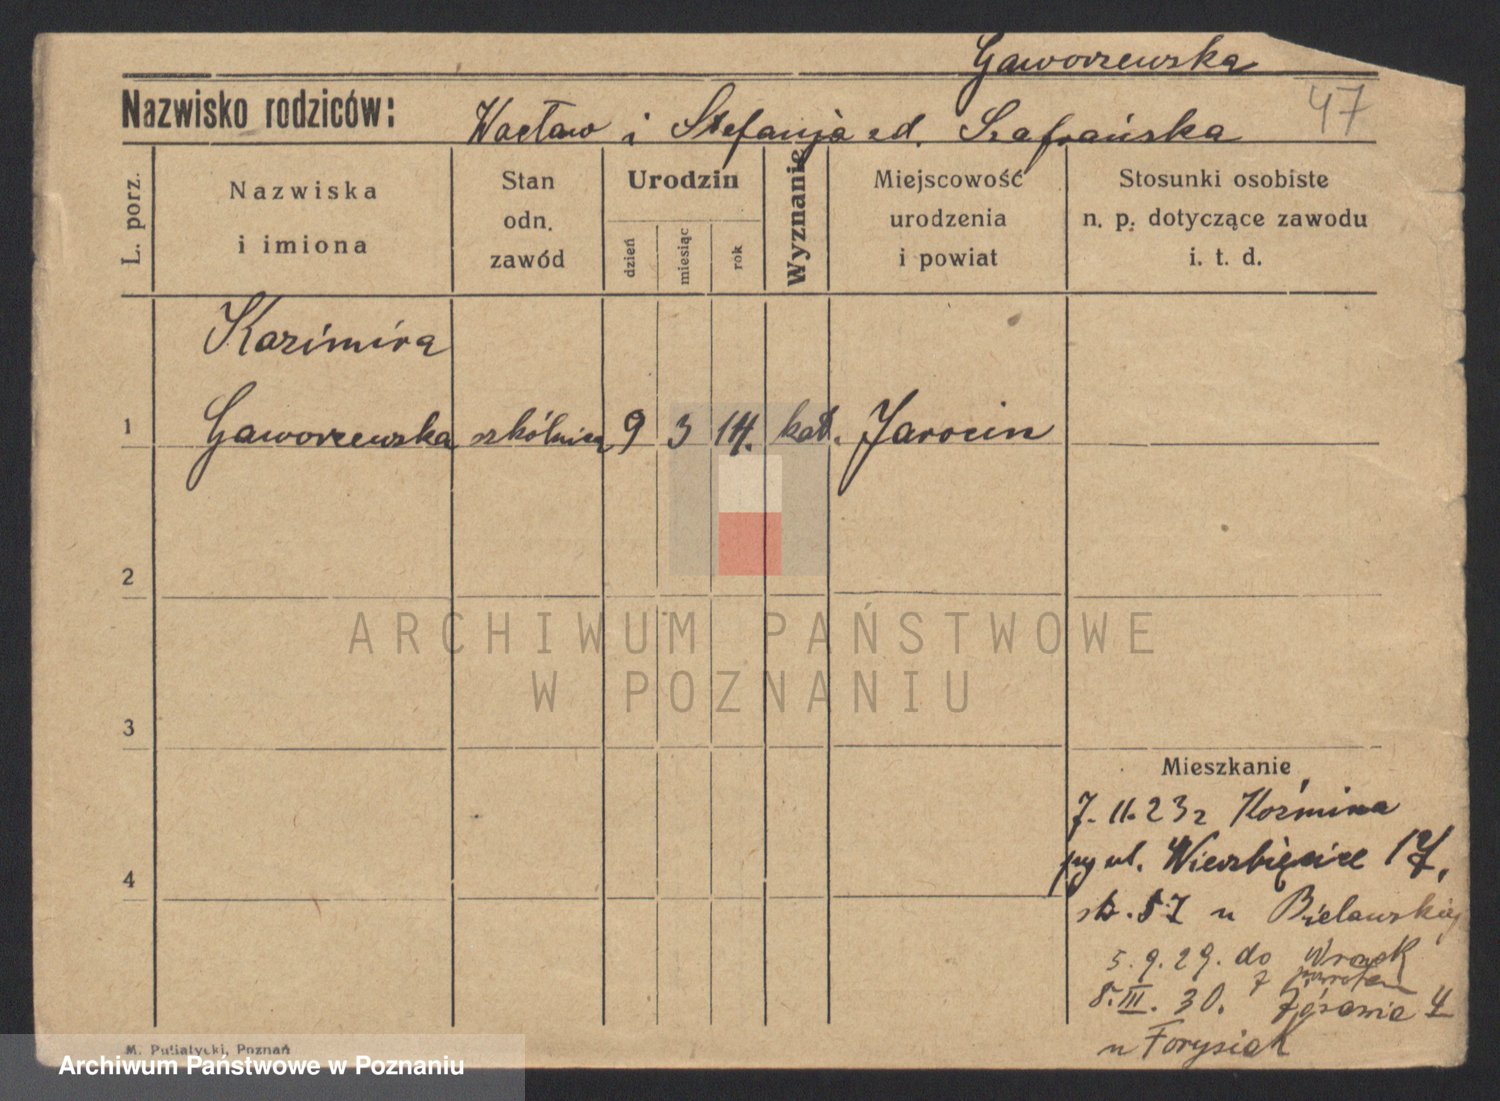 Gaworzewska
47
Nazwisko rodziców: Wacław i Stefanja zd. Szafrańska
L. porz.
Nazwiska i imiona
Stan odn. zawód
Urodzin
dzień
miesiąc
rok
Wyznanie
Miejscowość urodzenia i powiat
Stosunki osobiste n. p. dotyczące zawodu i. t. d.
Kazimira
1 Gaworzewska szkólnica 9 3 14. kat. Jarocin
2
ARCHIWUM PAŃSTWOWE
W POZNANIU
3
Mieszkanie
7. 11. 23 z Koźmina
4
ul. Wierzbięcice 17,
57 u Bielawskiej
5. 9. 29. do Wronek
z powrotem
8. III. 30. 4
u Forysiak
M. Putiatycki, Poznań
Archiwum Państwowe w Poznaniu